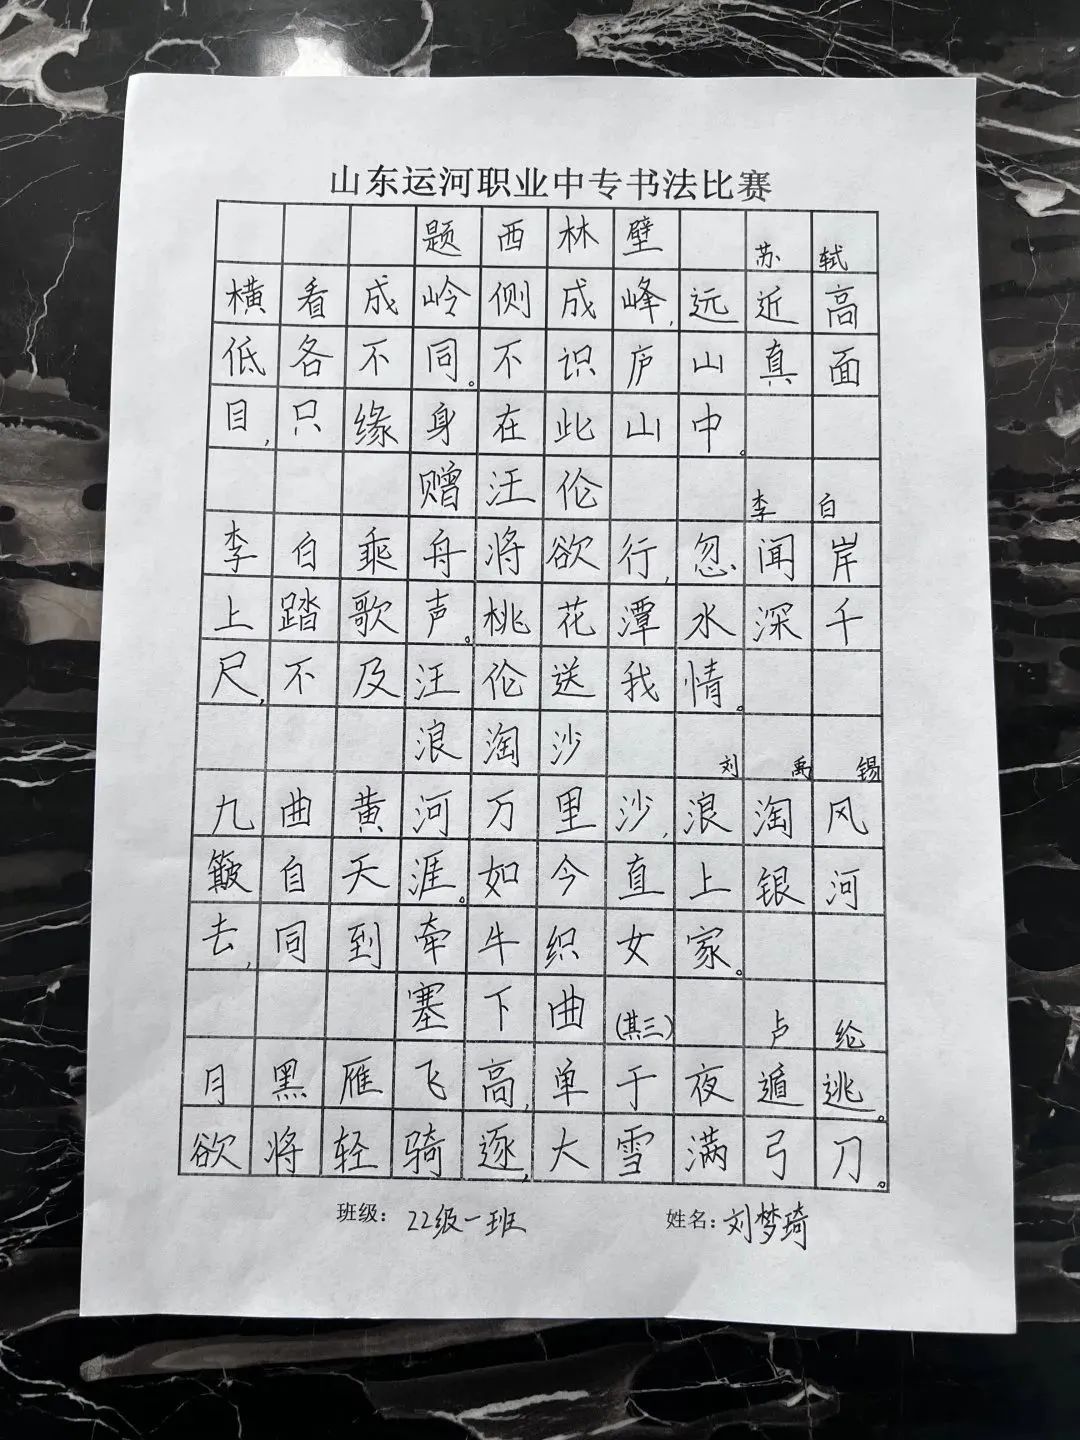 山东运河职业中专书法比赛
题西林壁 苏轼
横看成岭侧成峰,远近高
低各不同。不识庐山真面
目,只缘身在此山中。
赠汪伦 李白
李白乘舟将欲行,忽闻岸
上踏歌声。桃花潭水深千
尺,不及汪伦送我情。
浪淘沙 刘禹锡
九曲黄河万里沙,浪淘风
簸自天涯。如今直上银河
去,同到牵牛织女家。
塞下曲(其三) 卢纶
月黑雁飞高,单于夜遁逃。
欲将轻骑逐,大雪满弓刀。
班级: 22级一班 姓名: 刘梦琦